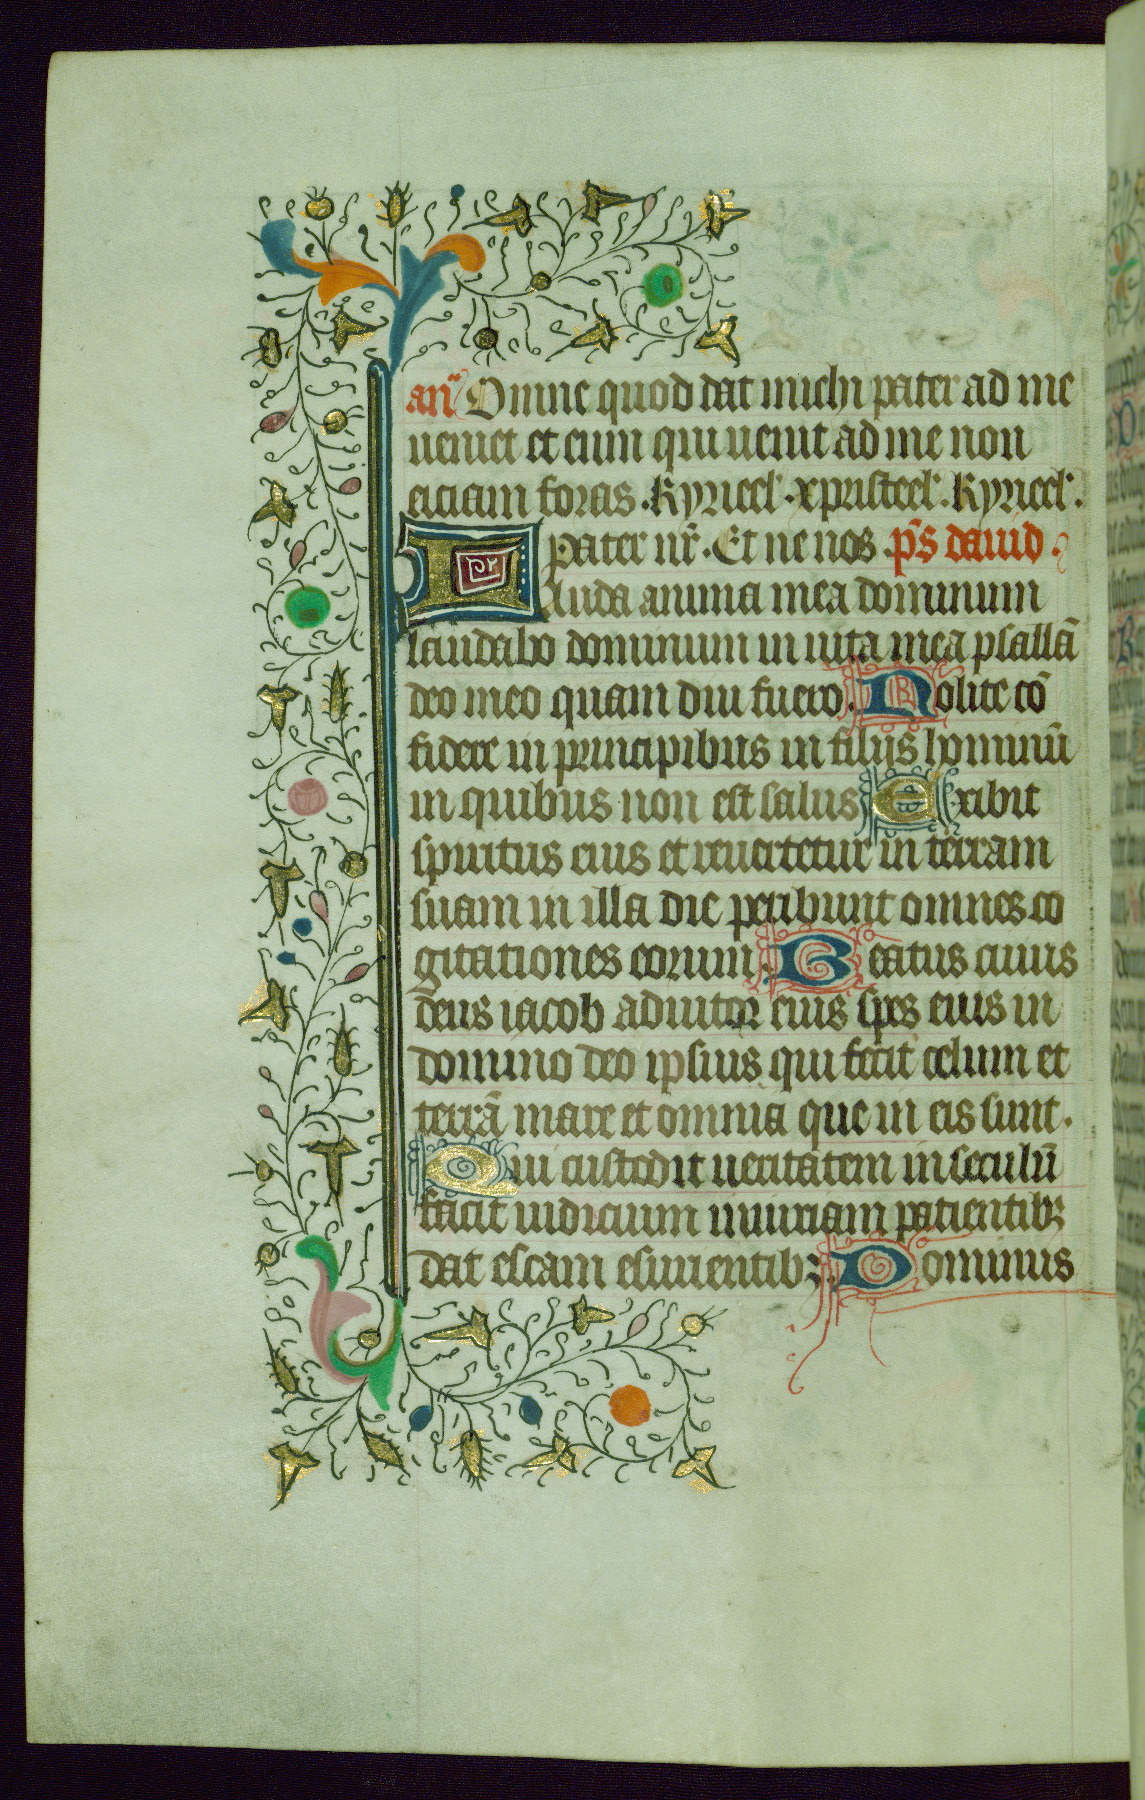 an̄ Omne quod dat michi pater ad me
ueniet et eum qui uenit ad me non
eiciam foras. Kyrieel'. xpristeel'. Kyrieel'.
pater nr̄. Et ne nos. ps̄ dauid.
Lauda anima mea dominum
laudabo dominum in uita mea psallā
deo meo quam diu fuero. Nolite cō
fidere in principibus in filijs hominū
in quibus non est salus Exibit
spiritus eius et reuertetur in terram
suam in illa die peribunt omnes co
gitationes eorum. Beatus cuius
deus iacob adiutor eius spes eius in
domino deo ipsius qui fecit celum et
terrā mare et omnia que in eis sunt.
Qui custodit ueritatem in seculū
facit iudicium iniuriam patientibꝫ
dat escam esurientibꝫ. Dominus